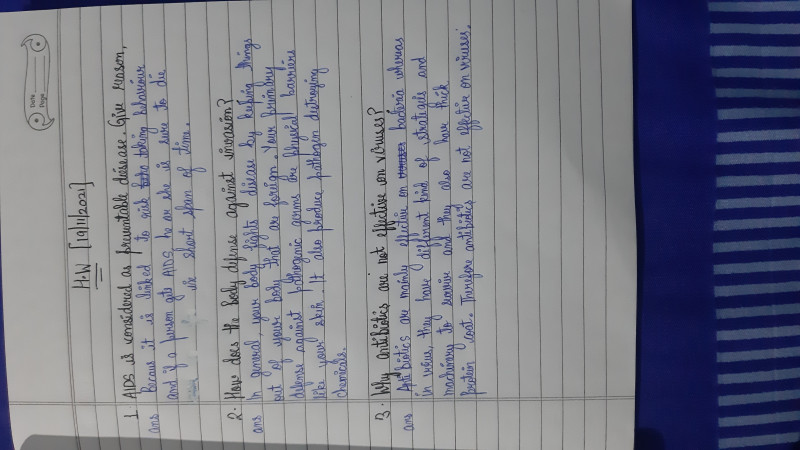 Date
Page
H.W [19/11/2021]
1. AIDS is considered as preventable disease. Give reason.
ans Becaus it is linked to risk taking behaviour
and if a person gets AIDS he or she is sure to die
in short span of time.
2. How does the body defense against invasion?
ans In general, your body fights disease by keeping things
out of your body that are foreign. Your primary
defense against pathogenic germs are physical barriers
like your skin. It also produce pathogen distroying
chemicals.
3. Why antibiotics are not effective on viruses?
ans Antibiotics are mainly effective on bacteria whereas
in virus, they have different kind of strategies and
machinary to survive and they also have thick
protein coat. Therefore antibiotics are not effective on viruses.